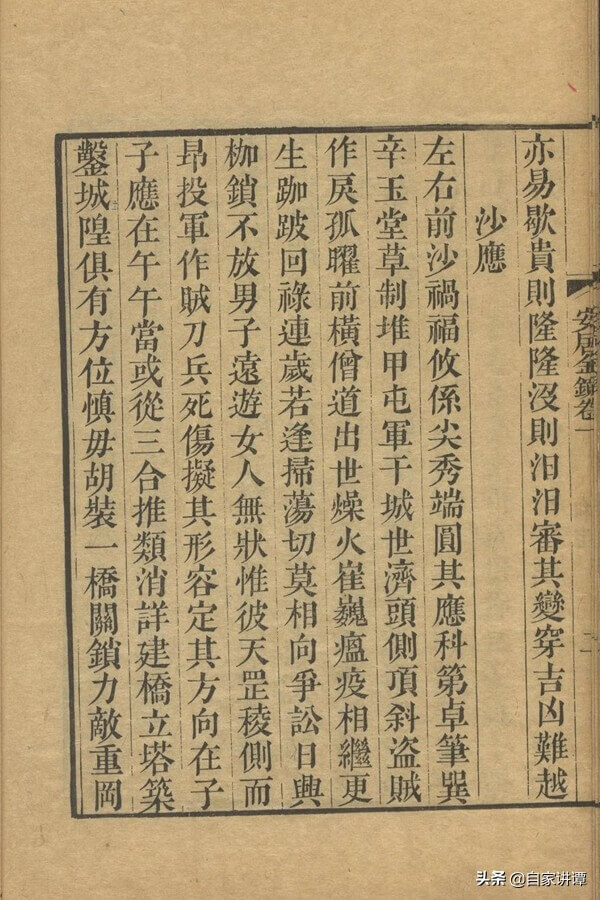 亦易歇貴則隆隆沒則汨汨審其變穿吉凶難越
沙應
左右前沙禍福攸係尖秀端圓其應科第卓筆巽
辛玉堂草制堆甲屯軍干城世濟頭側項斜盜賊
作戾孤曜前橫僧道出世燥火崔巍瘟疫相繼更
生跏跛回祿連歲若逢掃蕩切莫相向爭訟日興
枷鎖不放男子遠遊女人無狀惟彼天罡稜側而
昂投軍作賊刀兵死傷擬其形容定其方向在子
子應在午午當或從三合推類消詳建橋立塔築
鑿城隍俱有方位慎毋胡裝一橋關鎖力敵重岡
安居金鏡卷一
二
头条 @自家讲谭